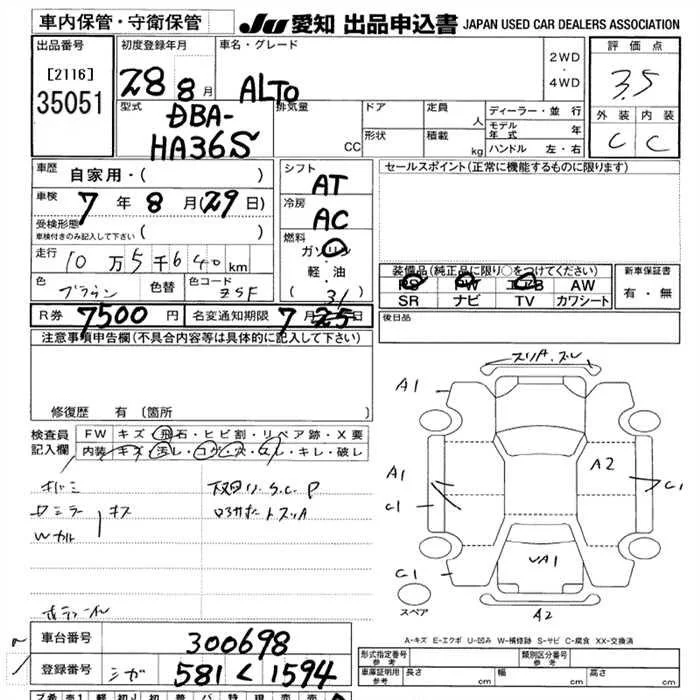 車内保管・守衛保管
JU 愛知 出品申込書 JAPAN USED CAR DEALERS ASSOCIATION
出品番号
[2116]
35051
初度登録年月
28 8月
車名・グレード
ALTO
2WD
・
4WD
評価点
3.5
外装 内装
C C
型式
DBA-
HA36S
排気量
CC
ドア
形状
定員
人
積載
kg
ディーラー・並行
モデル年式 年
ハンドル 左・右
車歴
自家用・( )
車検
7年8月(29日)
受検形態
車検付きのみ記入して下さい ( )
走行
10万5千640km
色
ブラウン
色替
色コード
ZSF
シフト
AT
冷房
AC
燃料
ガソリン
軽・油
( 31 )
セールスポイント(正常に機能するものに限ります)
装備品(純正品に限り○をつけてください)
PS PW エアB AW
SR ナビ TV カワシート
新車保証書
有・無
R券 7500円
名変通知期限 7月25日
後日品
注意事項申告欄(不具合内容等は具体的に記入して下さい)
修復歴 有 (箇所
検査員
記入欄
FW キズ・飛石・ヒビ割・リペア跡・X要
内装 キズ・汚レ・コゲ・穴・ハレ・キレ・破レ
A1
A1
C1
C1
A2
C1
UA1
A2
スペア
A-キズ E-エクボ U-凹み W-補修跡 S-サビ C-腐食 XX-交換済
車台番号
300698
登録番号
シガ 581 く 1594
形式指定番号
参考
類別区分番号
参考
車庫証明用
参考
長さ
cm
幅
cm
高さ
cm